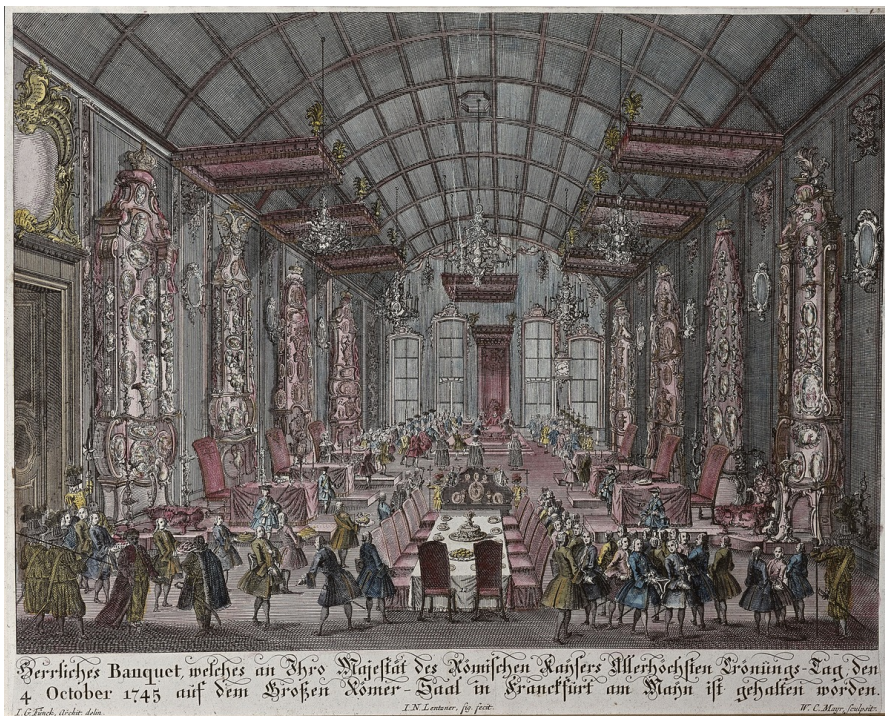 Herrliches Banquet, welches an Ihro Majestät des Römischen Kaysers Allerhöchsten Crönungs-Tag den
4 October 1745 auf dem Großen Römer-Saal in Franckfurt am Mayn ist gehalten worden.
I. G. Funck, Archit. delin. I. N. Lentzner, fig. fecit. W. C. Mayr, sculpsit.